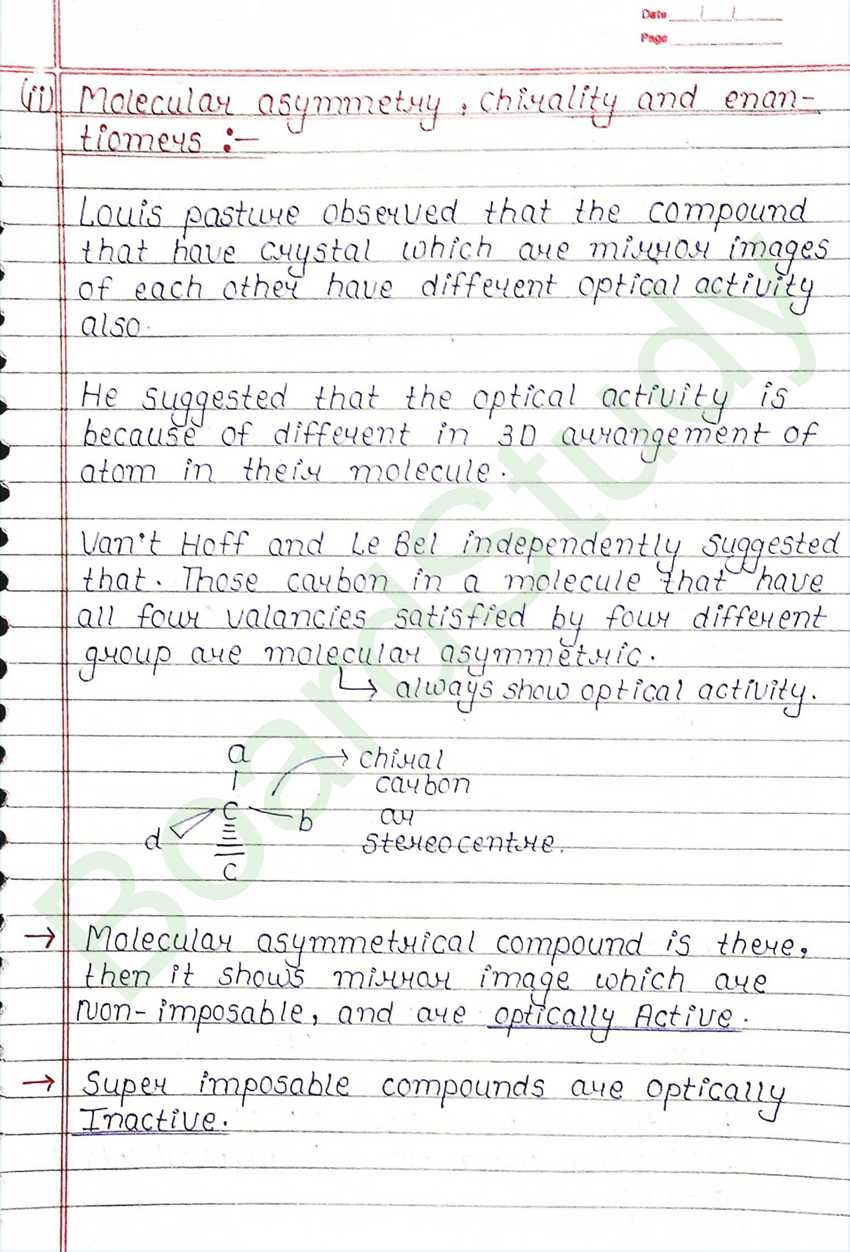 Date
Page
(ii) Molecular asymmetry, chirality and enan-
tiomers :-
Louis pasture observed that the compound
that have crystal which are mirror images
of each other have different optical activity
also.
He suggested that the optical activity is
because of different in 3D arrangement of
atom in their molecule.
Van't Hoff and Le Bel independently suggested
that. Those carbon in a molecule that have
all four valancies satisfied by four different
group are molecular asymmetric.
↳ always show optical activity.
a → chiral
carbon
C
b
ar
d
stereocentre.
C
→ Molecular asymmetrical compound is there,
then it shows mirrar image which are
Non-imposable, and are optically Active.
→ Super imposable compounds are optically
Inactive.
BoardStudy